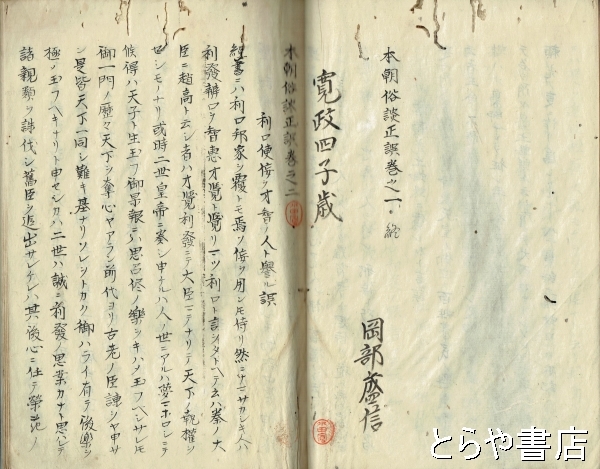 本朝俗談正誤巻之一 終
寛政四子歳
岡部盛信
本朝俗談正誤巻之二
利口便佞ヲ才智ノ人ト譽ル誤
經書ニハ利口邦家ヲ覆トモ焉ソ佞ヲ用ントモ侍リ然ニサニサカシキ人ハ
利發辨口ヲ智惠才覺ト覺リ一ツ利口ト言シタトヘテ云ハ秦ノ大
臣ニ趙高ト云シ者ハ才覺利發ニテ大臣ニテナリテ天下ノ執權ヲ
セシモノナリ或時二世皇帝ニ奏シ申ナルハ人ノ世ニアルハ夢マホロシニテ
候得ハ天子ト生玉フ御景報ニハ思召侭ノ樂シキハメ玉フヘシサレモ
御一門ノ歴々天下ヲ奪心ヤアラン前代ヨリ古老ノ臣諌シヤ申サ
ン是皆天下一同シ難キ基ナリソレシトカク御ハライ有テ後樂シ
極ノ玉フヘキナリト申セシカハ二世ハ誠ニ利發ノ思案カナト思ヒテ
諸親類ヲ誅伐シ舊臣ヲ追出サレケレハ其後心ニ任テ榮花ノ
とらや書店